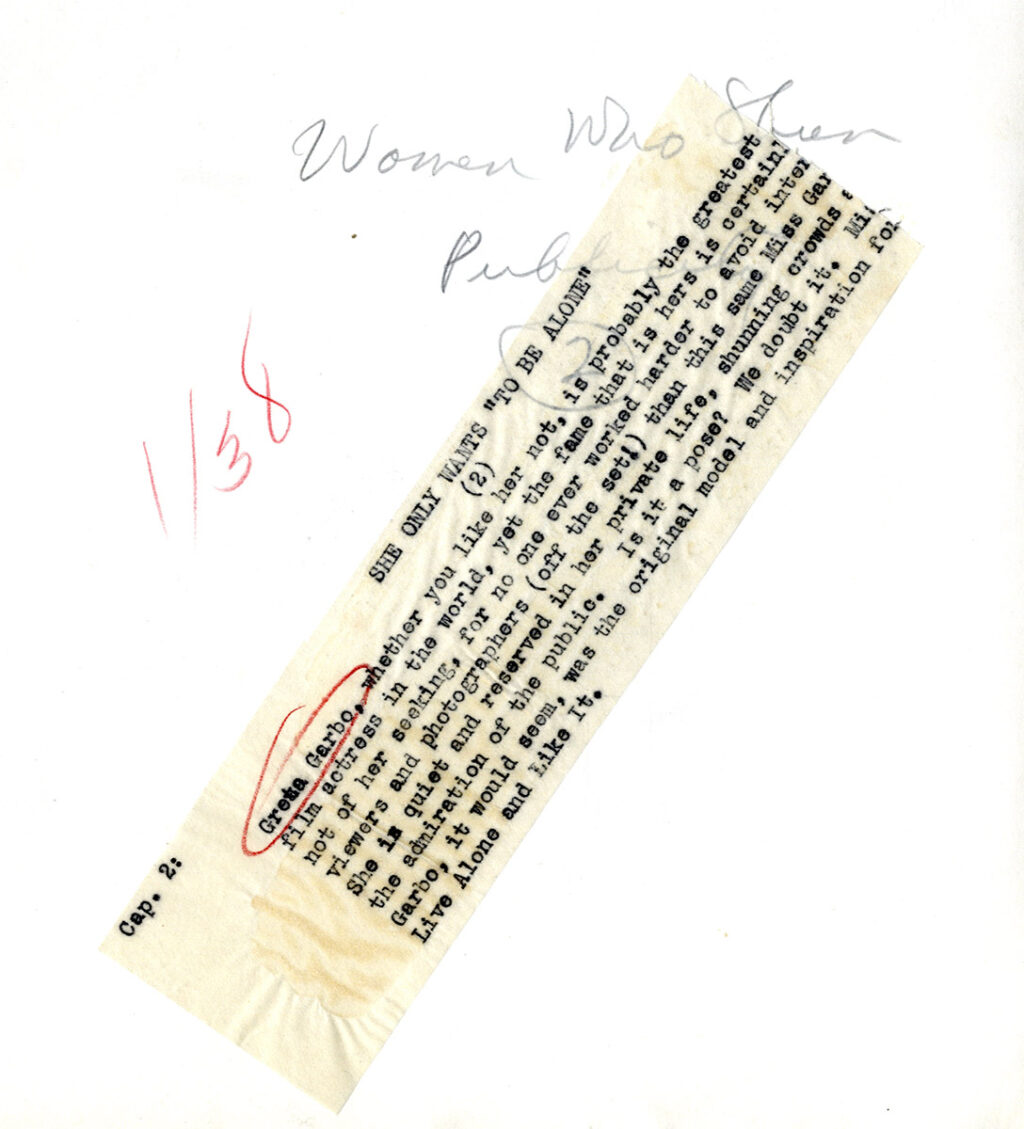 Women Who Shun
Publicity
2
1/38
SHE ONLY WANTS "TO BE ALONE"
(2)
Cap. 2:
Greta Garbo, whether you like her not, is probably the greatest
film actress in the world, yet the fame that is hers is certainl
not of her seeking, for no one ever worked harder to avoid inter
viewers and photographers (off the set!) than this same Miss Gar
She is quiet and reserved in her private life, shunning crowds a
the admiration of the public. Is it a pose? We doubt it. Mi
Garbo, it would seem, was the original model and inspiration for
Live Alone and Like It.